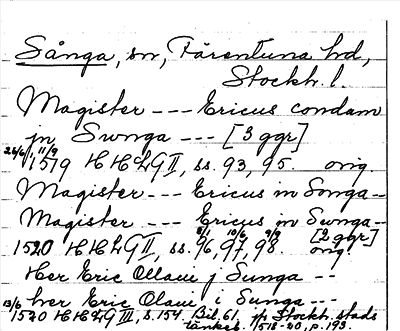 Sånga, sn, Färentuna hd,
Stockh. l.
Magister --- Ericus condam
jn Swnga --- [3 ggr]
26/6, 11/9
1519 HHLG II, ss. 93, 95. orig.
Magister --- Ericus in Songa --
Magister --- Ericus in Swnga --
8/1 10/6 9/9 [2 ggr]
1520 HHLG II, ss. 96, 97, 98. orig.
Her Eric Olaui j Sunga --
her Eric Olaui i Sunga ---
13/6
1520 HHLG III, s. 154. Bil. 61, jfr Stockh. stads
tänkeb. 1518-20, p. 193.